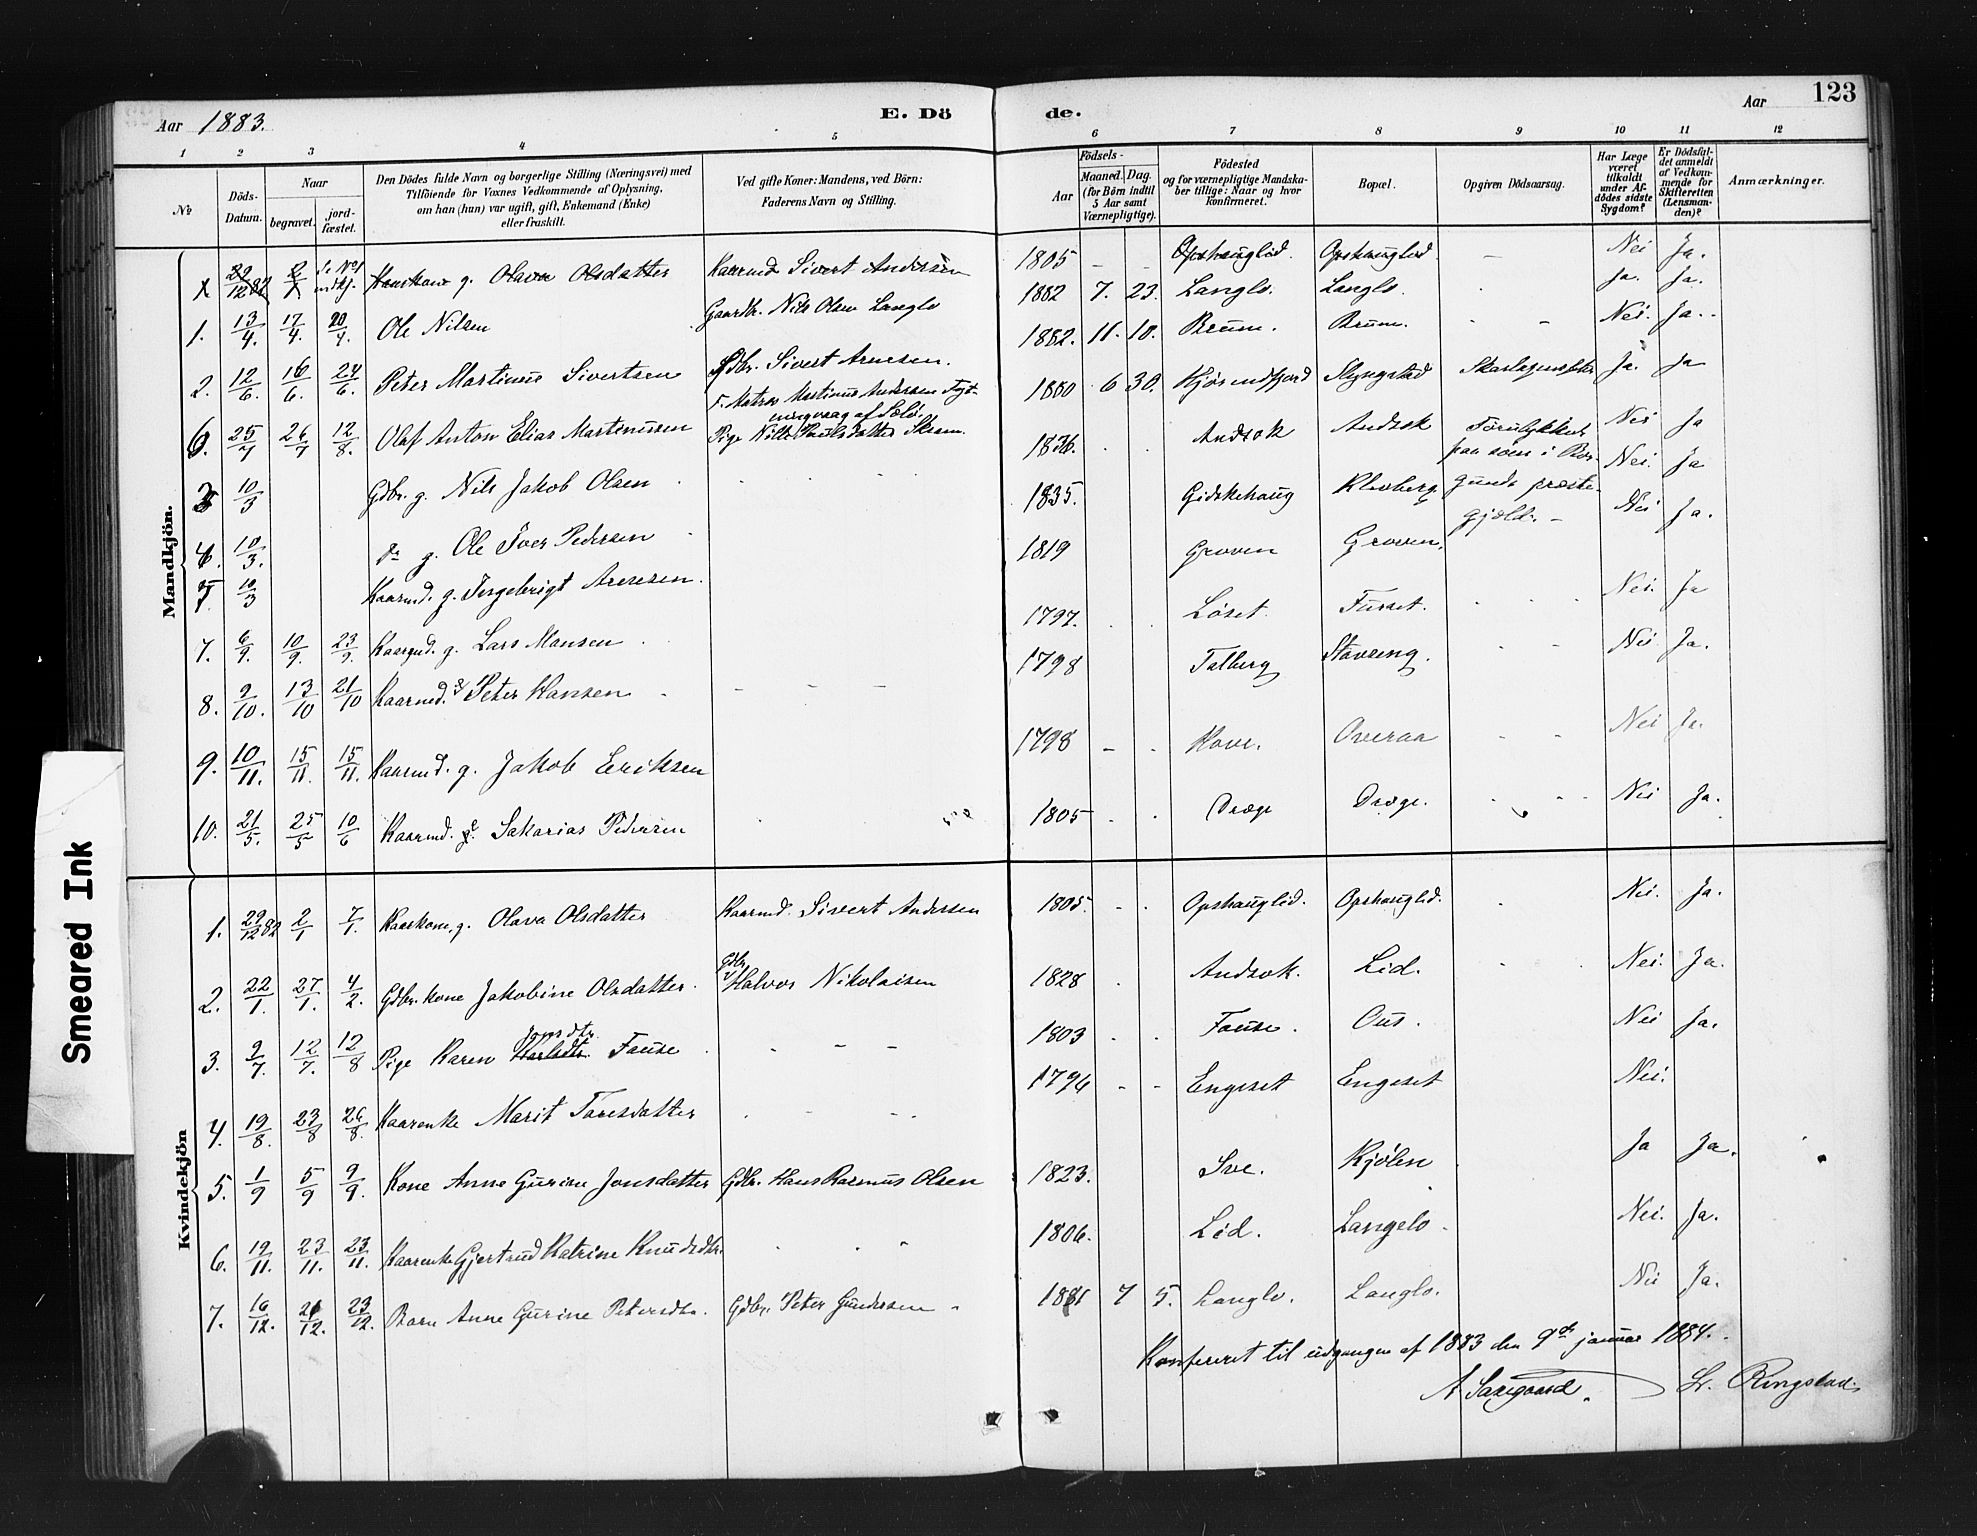 Aar 1883.
E. Döde.
Aar 123
1 2 3 4 5 6 7 8 9 10 11 12
№
Döds-Datum.
Naar
begravet.
jordfæstet.
Den Dödes fulde Navn og borgerlige Stilling (Næringsvei) med Tilföiende for Voxnes Vedkommende af Oplysning, om han (hun) var ugift, gift, Enkemand (Enke) eller fraskilt.
Ved gifte Koner: Mandens, ved Börn: Faderens Navn og Stilling.
Aar
Födsels-
Maaned. Dag.
(for Börn indtil 5 Aar samt Værnepligtige).
Födested og for værnepligtige Mandskaber tillige: Naar og hvor konfirmeret.
Bopæl.
Opgiven Dödsaarsag.
Har Læge været tilkaldt under Afdödes sidste Sygdom?
Er Dödsfaldet anmeldt af Vedkommende for Skifteretten (Lensmanden)?
Anmærkninger.
Mandkjön.
29/12 82 2/1 Kaarkone g. Olava Olsdatter Kaarmd Sivert Andersen 1805 – – Opshauglid. Opshauglid – Nei Ja.
1. 13/4. 17/4. 20/4. Ole Nilsen Gaardbr. Nils Olsen Langlo 1882 7. 23. Langlo. Langlo. Ja. Ja.
2. 12/6. 16/6. 24/6. Peter Martinus Sivertsen Gdbr. Sivert Arnesen. 1882. 11. 10. Brüm. Brüm. Nei. Ja.
6. 25/7 26/7 12/8. Olaf Anton Elias Martinusen F. Matros Martinus Andersen Pige Paulsdatter 1880 6 30. Kjörundfjord Slyngstad Ja. Ja
3 10/3 Gdbr. g. Nils Jakob Olsen 1836. Andsok Andsok Forulykket paa soen i Bor- Nei Ja
4. 10/3. do g. Ole Iver Pedersen 1835. Gidskehaug Kleoberg gunds præste- Nei. Ja
5 10/3 Kaarmd. g. Ingebrigt Arnesen. 1819 Groven Groven. gjeld. – Nei Ja.
7. 6/9. 10/9. 23/9. Kaarmd. g. Lars Monsen 1797. Löset. Fusset. Nei. Ja
8. 9/10. 13/10 21/10 Kaarmd. Peter Hansen – – – 1798 Talberg Stavseng. Nei Ja.
9. 10/11. 15/11. 15/11. Kaarmd. g. Jakob Eriksen 1798 – Hove. Overaa Nei Ja.
10. 21/5. 25/5 10/6 Kaarmd. Sakarias Pedersen 1805 Dræge Dræge. Nei Ja.
Kvindekjön
1. 29/12 82 2/1 7/1. Kaarkone, g. Olava Olsdatter Kaarmd. Sivert Andersen 1805. Opshauglid. Opshauglid. Nei. Ja.
2. 22/1. 27/1. 4/2. Gdbr. kone Jakobine Olsdatter. Gdbr. Halvor Nikolaisen 1828 Andsok. Lid. Nei. Ja.
Jonsdtr
3. 9/7. 12/7. 12/8 Pige Karen Fause – – – 1803 Fause. Ous. Nei Ja.
4. 19/8. 23/8 26/8. Kaarenke Marit Toresdatter 1796 – – Engeset Engeset Nei.
5. 1/9 5/9 9/9. Kone Anne Gurine Jonsdatter Gdbr. Hans Rasmus Olsen 1823. Sve. Kjölen Ja Ja.
6. 19/11. 23/11. 23/11. Kaarenke Gjertrud Katrine Knudsdtr. 1806. Lid. Langelo. Nei. Ja.
7. 16/12. 21/12. 23/12. Barn Anne Gurine Petersdtr. Gdbr. Peter Gundersen 1881 7 5. Langlo. Langlo. Nei Ja.
Konfereret til udgangen af 1883 den 9de januar 1884.
A Saxegaard. Sr. Ringstad.
Smeared Ink